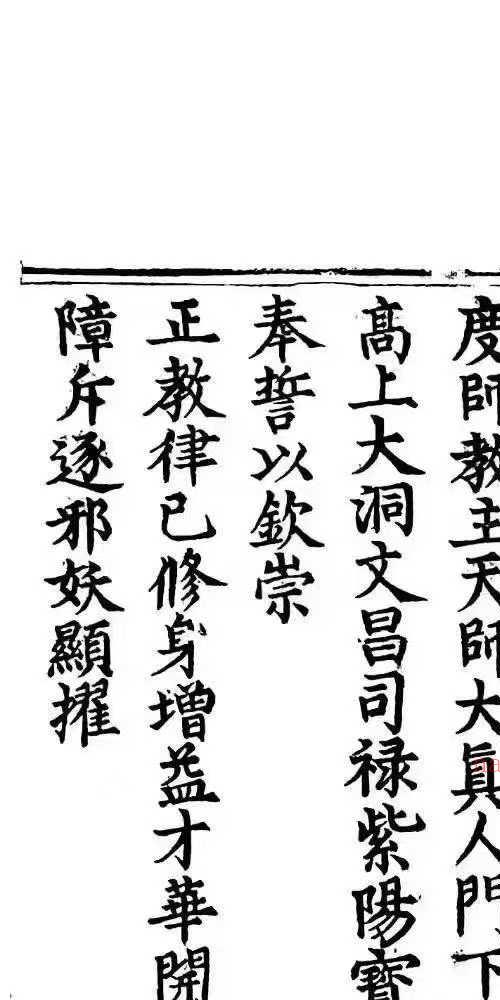 度師教主天師大眞人門下
高上大洞文昌司禄紫陽寳
奉誓以欽崇
正教律己修身增益才華開
障斥逐邪妖顯擢